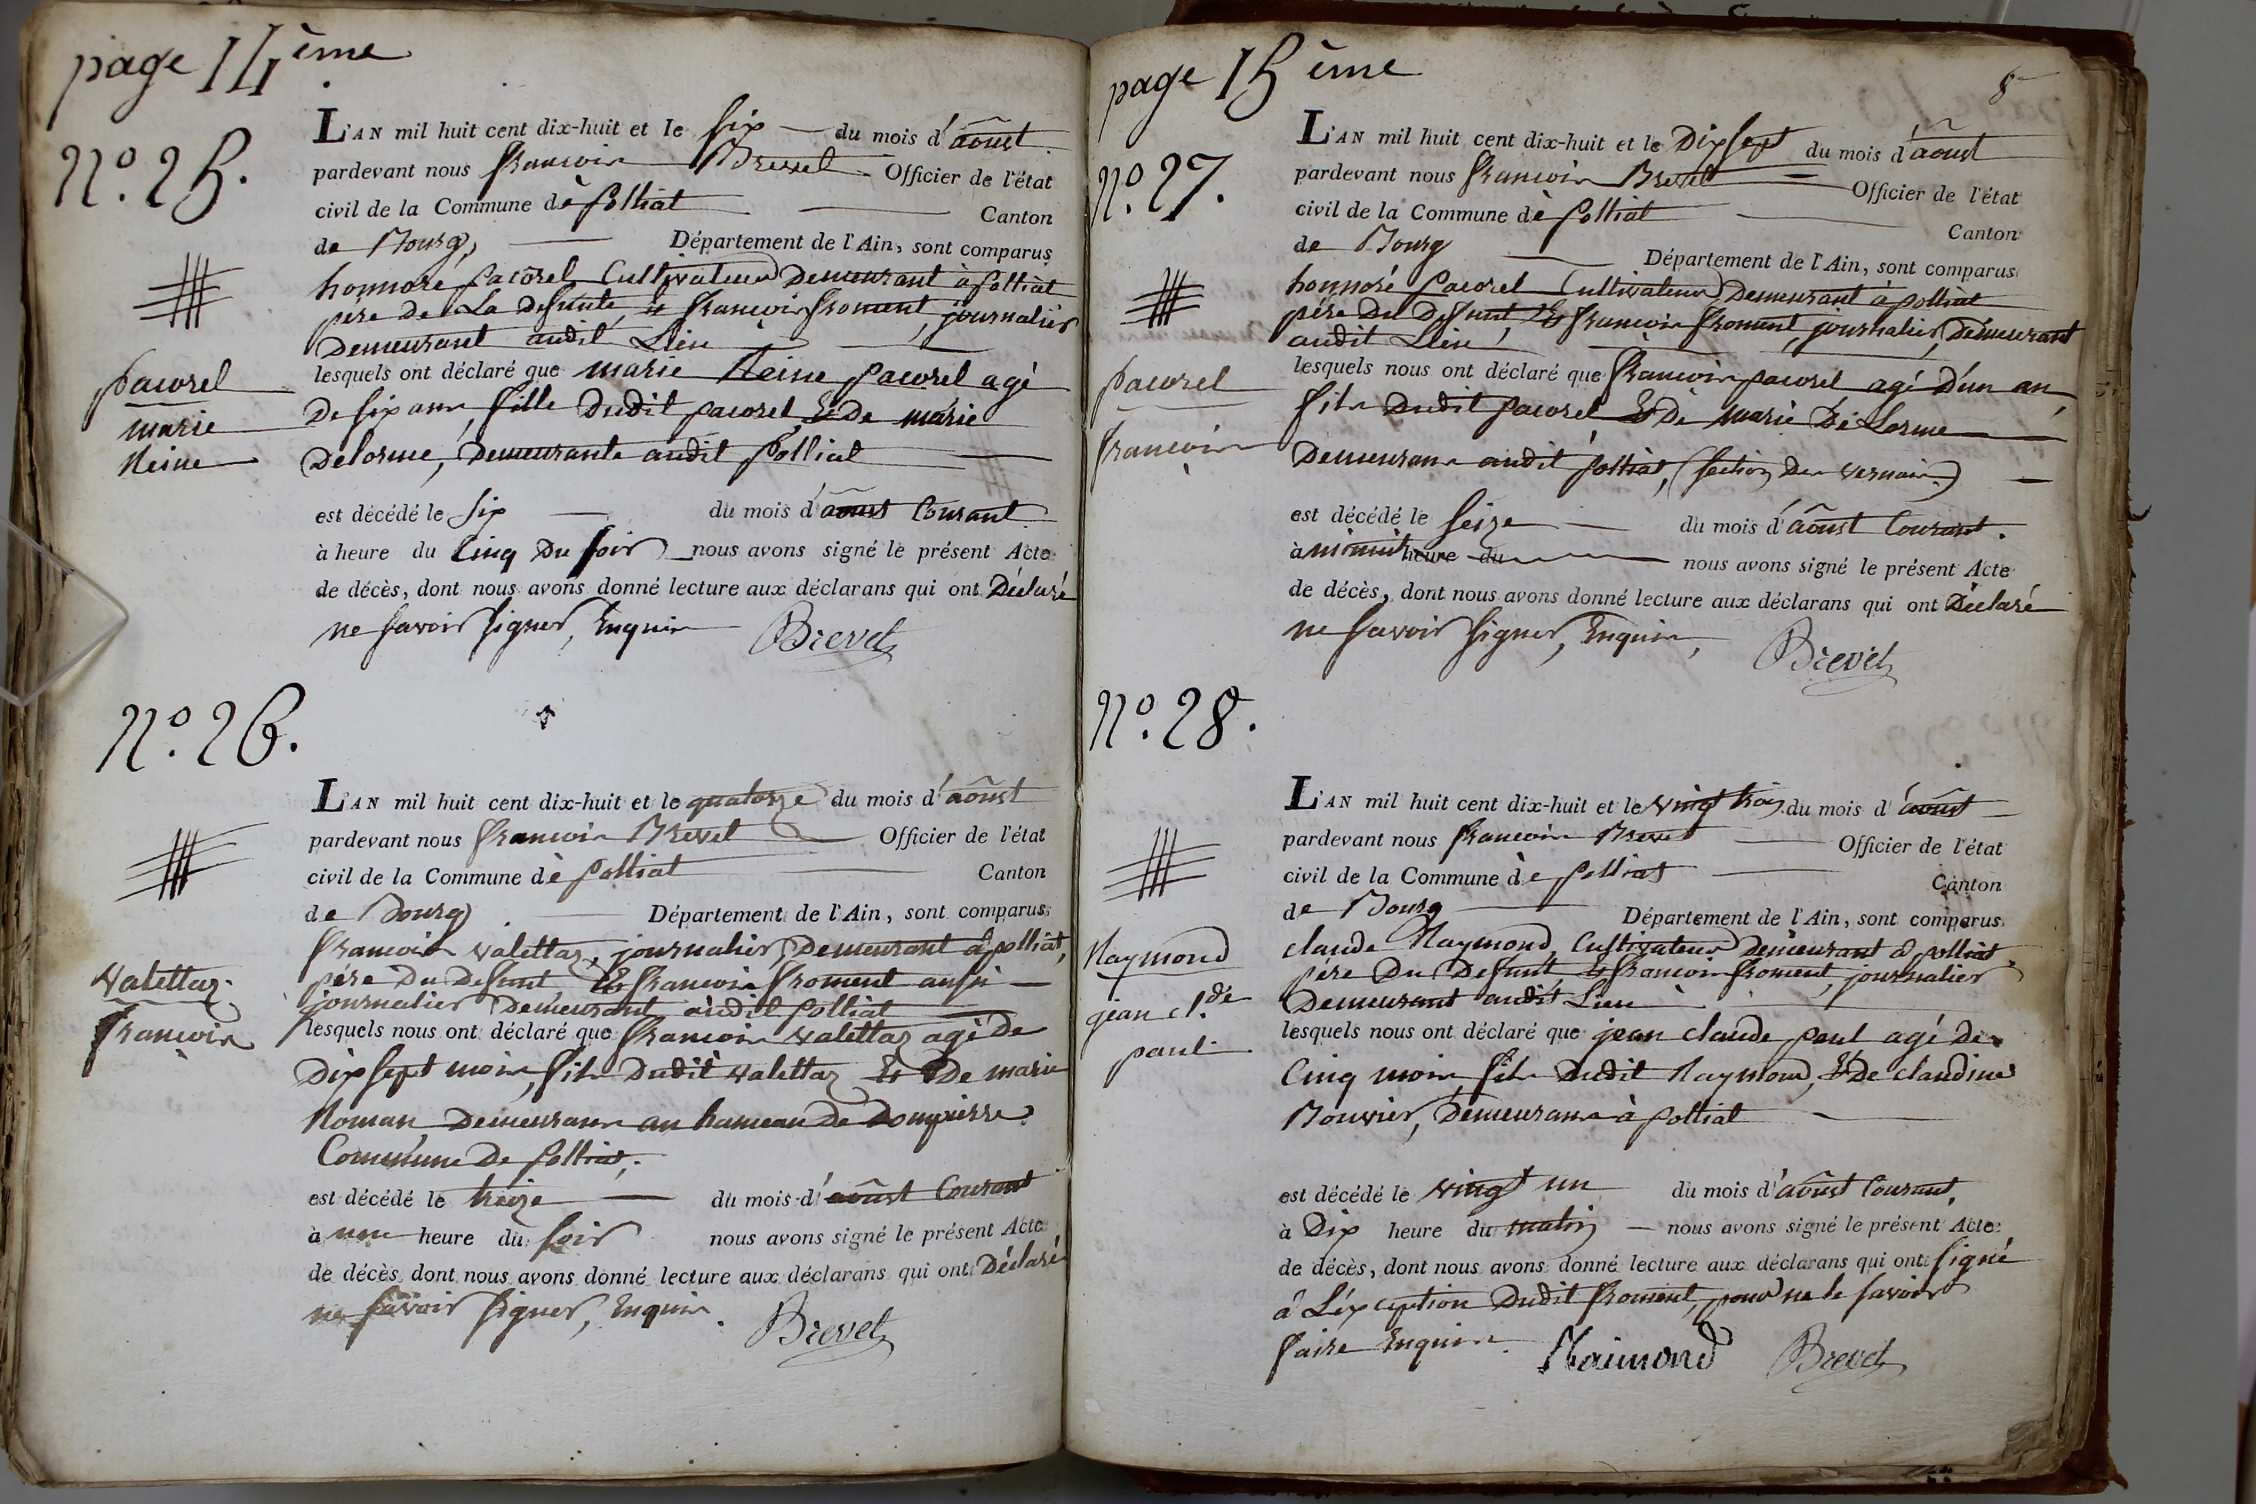 page 14ème
N.º 25.
L'AN mil huit cent dix-huit et le six du mois d'aôust
pardevant nous francois Brevet Officier de l'état
civil de la Commune de polliat Canton
de Bourg, Département de l'Ain, sont comparus
honnoré pacorel Cultivateur Demeurant à polliat
père De La defunte, & francois froment, journalier
Demeurant audit Lieu
pacorel
marie
Reine
lesquels ont déclaré que marie Reine pacorel agé
De six ans, fille Dudit pacorel, & De marie
Delorme, Demeurants audit polliat
est décédé le six du mois d'aôust Courant.
à heure du Cinq Du soir nous avons signé le présent Acte
de décès, dont nous avons donné lecture aux déclarans qui ont Déclaré
ne savoir signer, Enquis Brevet
N.º 26.
L'AN mil huit cent dix-huit et le quatorze du mois d'aôust
pardevant nous francois Brevet Officier de l'état
civil de la Commune de polliat Canton
de Bourg Département de l'Ain, sont comparus
francois valettaz, journalier, Demeurant à polliat,
père Du Defunt & francois froment aussi
journalier Demeurant audit polliat
valettaz.
francois
lesquels nous ont déclaré que francois valettaz agé De
Dix sept mois, fils Dudit valettaz & De marie
Roman, Demeurans au hameau De Dompierre
Commune De polliat,
est décédé le treize du mois d'aôust Courant
à une heure du soir nous avons signé le présent Acte
de décès, dont nous avons donné lecture aux déclarans qui ont Déclaré
ne savoir signer, Enquis. Brevet
page 15ème
8
N.º 27.
L'AN mil huit cent dix-huit et le Dix sept du mois d'aôust
pardevant nous francois Brevet Officier de l'état
civil de la Commune de polliat Canton
de Bourg Département de l'Ain, sont comparus
honnoré pacorel Cultivateur Demeurant à polliat
père Du Defunt, & francois froment, journalier, Demeurant
audit Lieu
pacorel
francois
lesquels nous ont déclaré que francois pacorel agé D'un an,
fils Dudit pacorel & De marie De Lorme
Demeurans audit polliat, (section Des vernais.)
est décédé le seize du mois d'aôust Courant.
à minuit heure du nous avons signé le présent Acte
de décès, dont nous avons donné lecture aux déclarans qui ont Déclaré
ne savoir signer, Enquis, Brevet
N.º 28.
L'AN mil huit cent dix-huit et le vingt trois du mois d'aôust
pardevant nous francois Brevet Officier de l'état
civil de la Commune de polliat Canton
de Bourg Département de l'Ain, sont comparus
claude Raymond, Cultivateur Demeurant à polliat
père Du Defunt, & francois froment, journalier
Demeurant audit Lieu
Raymond
jean cl.de
paul
lesquels nous ont déclaré que jean claude paul agé De
Cinq mois, fils Dudit Raymond, & De claudine
Bouvier, Demeurans à polliat
est décédé le vingt un du mois d'aôust Courant,
à Dix heure du matin nous avons signé le présent Acte
de décès, dont nous avons donné lecture aux déclarans qui ont signé
à L'exception Dudit froment, pour ne le savoir
faire Enquis. Raimond Brevet